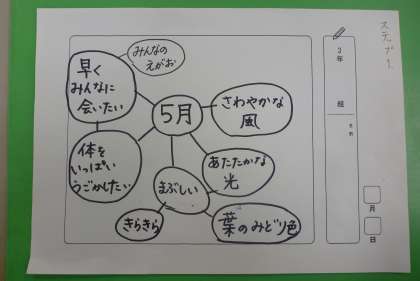 みんなの
えがお
早く
みんなに
会いたい
5月
さわやかな
風
体を
いっぱい
うごかしたい
まぶしい
あたたかな
光
きらきら
葉のみどり色
2年
組
月
日